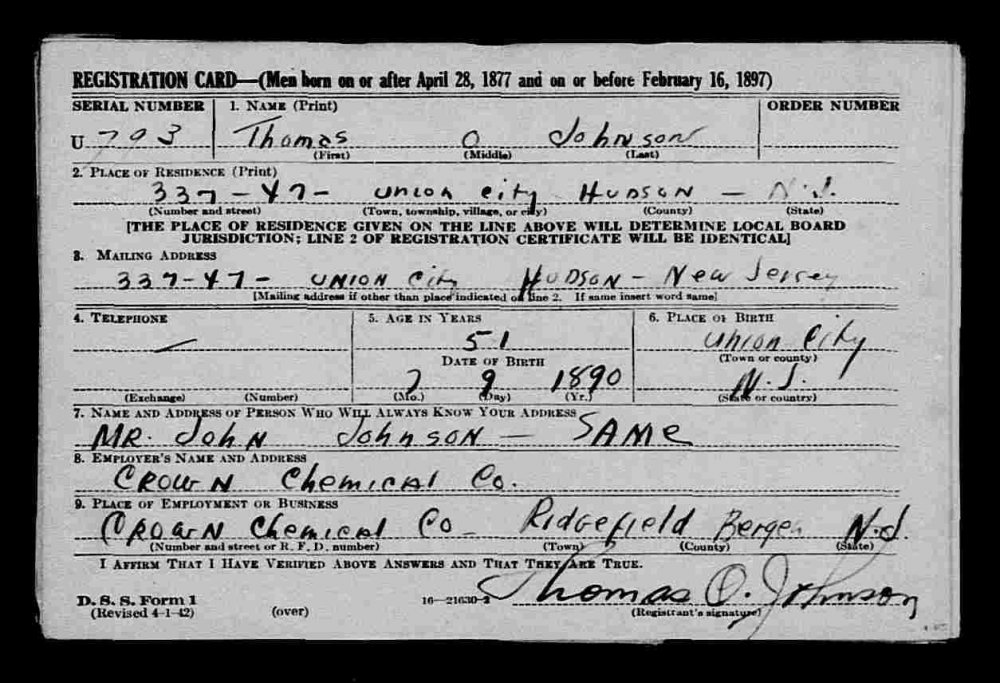 REGISTRATION CARD—(Men born on or after April 28, 1877 and on or before February 16, 1897)
SERIAL NUMBER 1. NAME (Print) ORDER NUMBER
U 793 Thomas O Johnson
(First) (Middle) (Last)
2. PLACE OF RESIDENCE (Print)
337-47- Union City HUDSON - N.J.
(Number and street) (Town, township, village, or city) (County) (State)
[THE PLACE OF RESIDENCE GIVEN ON THE LINE ABOVE WILL DETERMINE LOCAL BOARD
JURISDICTION; LINE 2 OF REGISTRATION CERTIFICATE WILL BE IDENTICAL]
3. MAILING ADDRESS
337-47- UNION City HUDSON - New Jersey
[Mailing address if other than place indicated on line 2. If same insert word same]
4. TELEPHONE 5. AGE IN YEARS 6. PLACE OF BIRTH
— 51 Union City
DATE OF BIRTH (Town or county)
7 9 1890 N.J.
(Exchange) (Number) (Mo.) (Day) (Yr.) (State or country)
7. NAME AND ADDRESS OF PERSON WHO WILL ALWAYS KNOW YOUR ADDRESS
MR. John Johnson — SAME
8. EMPLOYER'S NAME AND ADDRESS
CROWN Chemical Co.
9. PLACE OF EMPLOYMENT OR BUSINESS
CROWN Chemical Co - Ridgefield Bergen N.J.
(Number and street or R. F. D. number) (Town) (County) (State)
I AFFIRM THAT I HAVE VERIFIED ABOVE ANSWERS AND THAT THEY ARE TRUE.
D. S. S. Form 1 Thomas O. Johnson
(Revised 4-1-42) (over) 16—21630-2 (Registrant's signature)